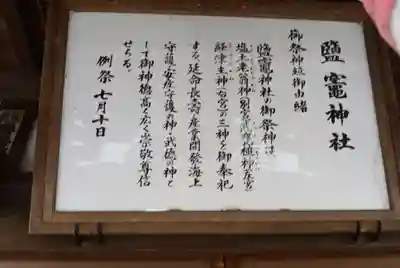 鹽竈神社
御祭神並御由緒
鹽竈神社の御祭神は
塩土老翁神(別宮)武甕槌神(左宮)
経津主神(右宮)の三神を御奉祀
する、延命長寿産業開發海上
守護安産守護の神武徳の神と
して御神徳高く広く崇敬尊信
せらる。
例祭 七月十日